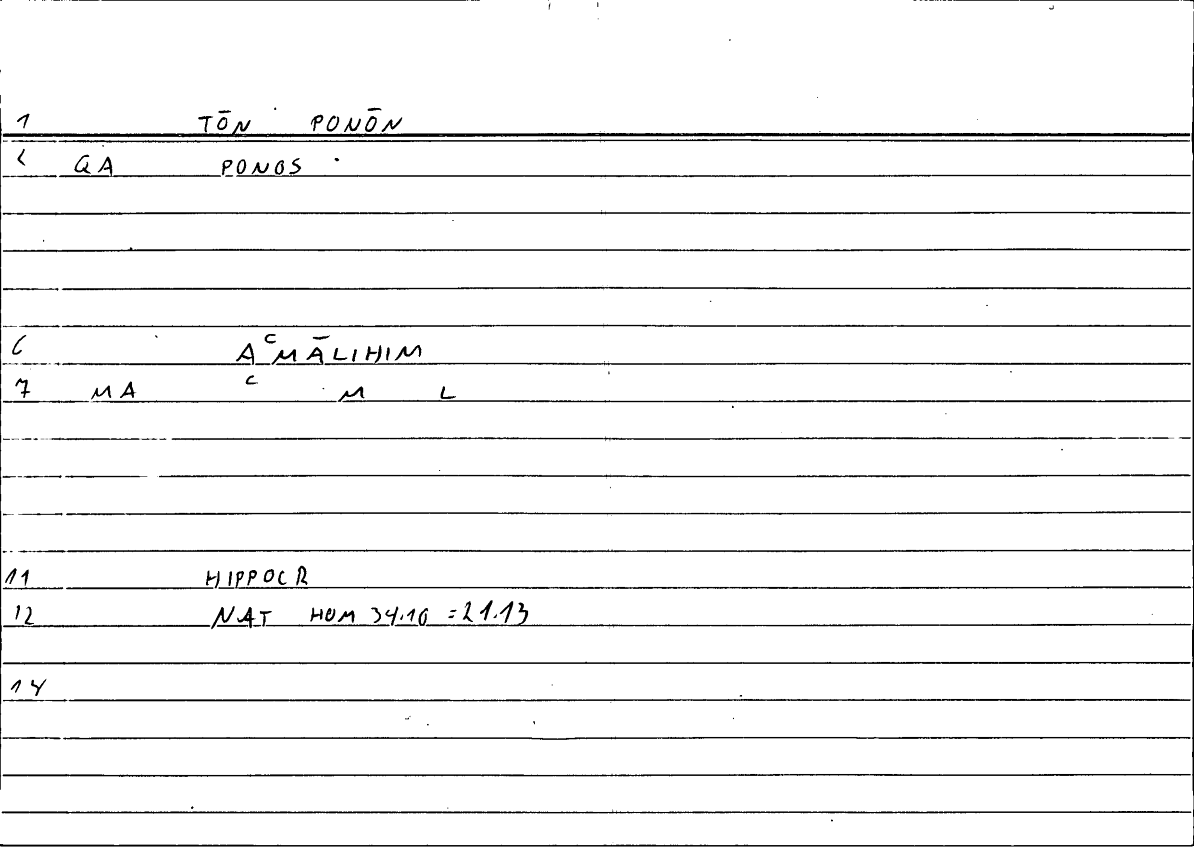 1 TŌN PONŌN
2 GA PONOS
6 AᶜMĀLIHIM
7 MA ᶜ M L
11 HIPPOCR
12 NAT HOM 34.10 =21.13
14